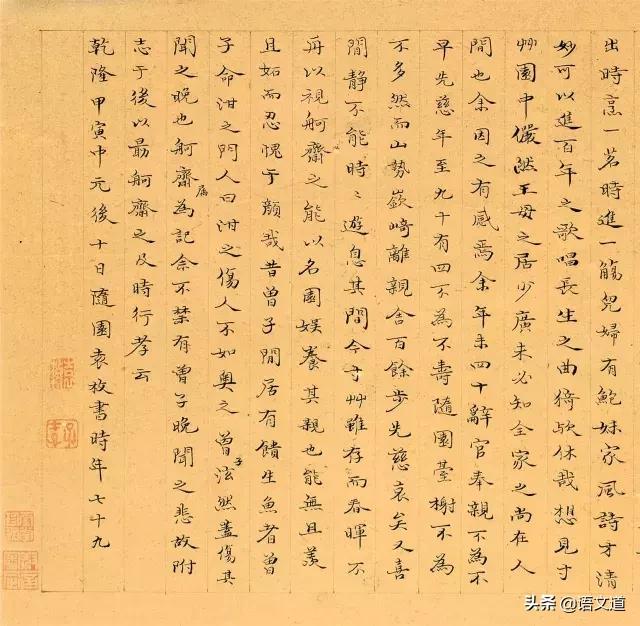 出時烹一茗時進一觴兒婦有鮑妹家風詩才清
妙可以進百年之歌唱長生之曲猗歟休哉想見寸
艸園中儼然王母之居少廣未必知全家之尚在人
間也余因之有感焉余年未四十辭官奉親不為不
早先慈年至九十有四不為不壽隨園臺榭不為
不多然而山勢嶔崎離親舍百餘步先慈衰矣又喜
閒靜不能時〻遊息其間今寸艸雖存而春暉不
再以視舸齋之能以名園娛養其親也能無且羨
且妬而忍愧于顔哉昔曾子閒居有饋生魚者曾
子命泔之門人曰泔之傷人不如奥之曾子泫然蓋傷其
聞之晚也舸齋屬為記余不禁有曾子晚聞之悲故附
志于後以勗舸齋之及時行孝云
乾隆甲寅中元後十日隨園袁枚書時年七十九
头条 @语文道